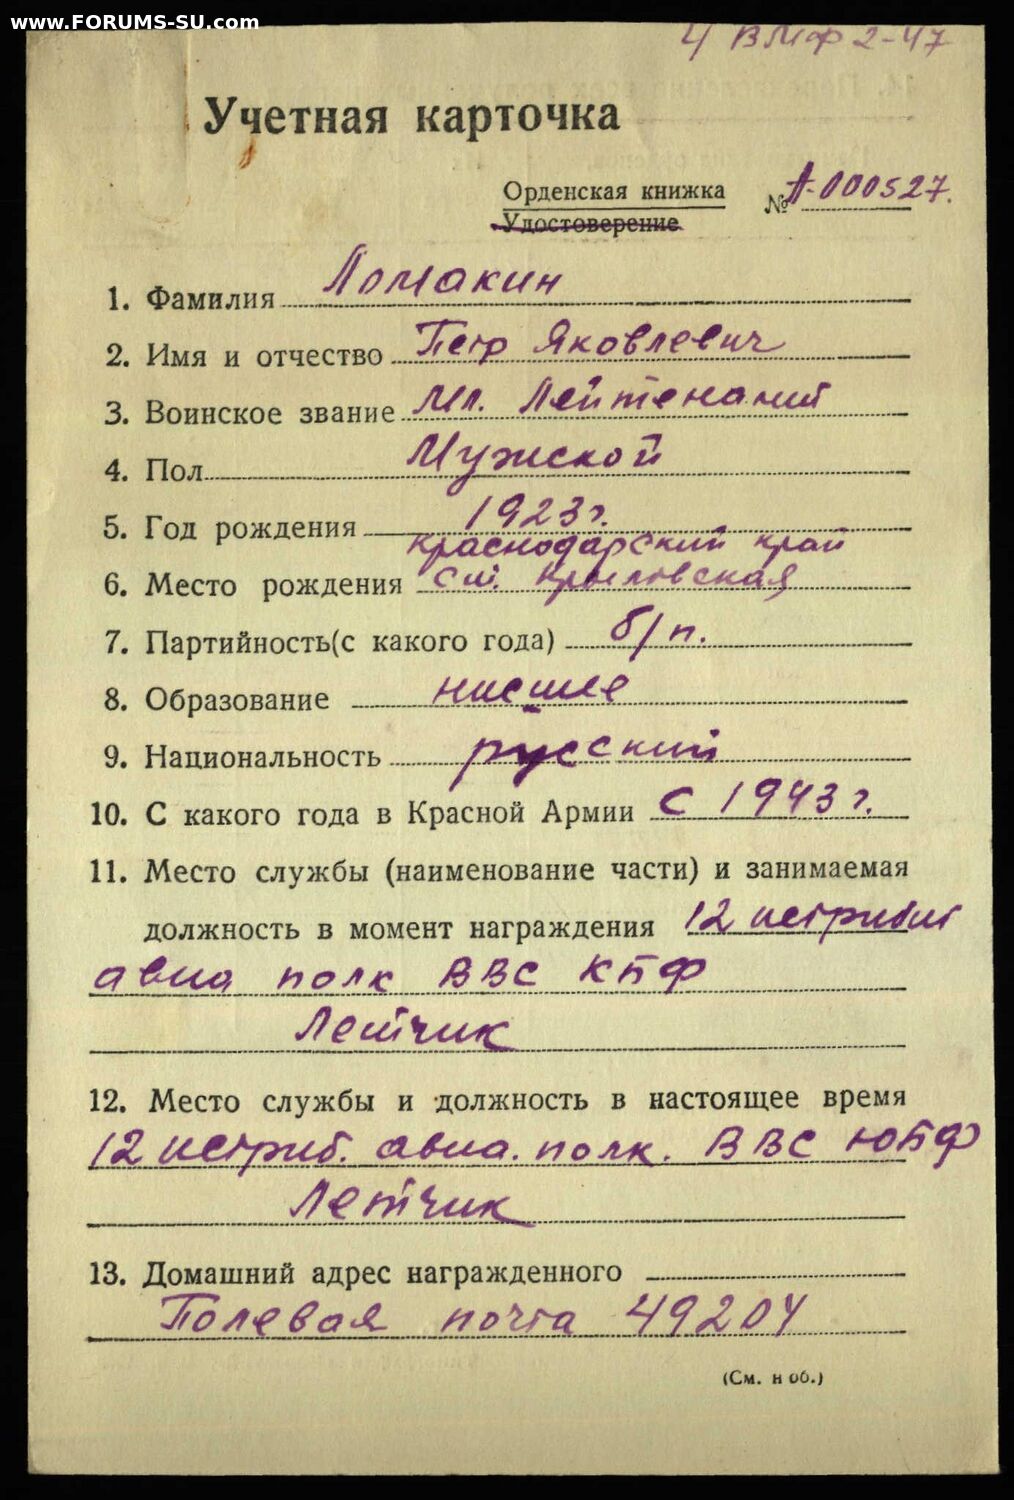 www.FORUMS-SU.com
4 ВМФ 2-47
Учетная карточка
Орденская книжка № А-000527.
Удостоверение
1. Фамилия Ломакин
2. Имя и отчество Петр Яковлевич
3. Воинское звание Мл. Лейтенант
4. Пол Мужской
5. Год рождения 1923 г.
Краснодарский край
6. Место рождения ст. Крыловская
7. Партийность(с какого года) б/п.
8. Образование нисшее
9. Национальность русский
10. С какого года в Красной Армии с 1943 г.
11. Место службы (наименование части) и занимаемая
должность в момент награждения 12 истребит
авиа полк ВВС КБФ
Летчик
12. Место службы и должность в настоящее время
12 истриб. авиа. полк. ВВС ЮБФ
Летчик
13. Домашний адрес награжденного
Полевая почта 49204
(См. н об.)